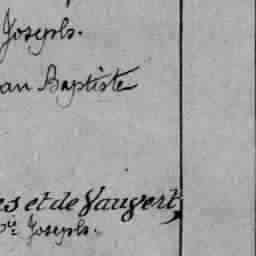 Josephs.
an Baptiste
es et de Vauvert,
Josephs.